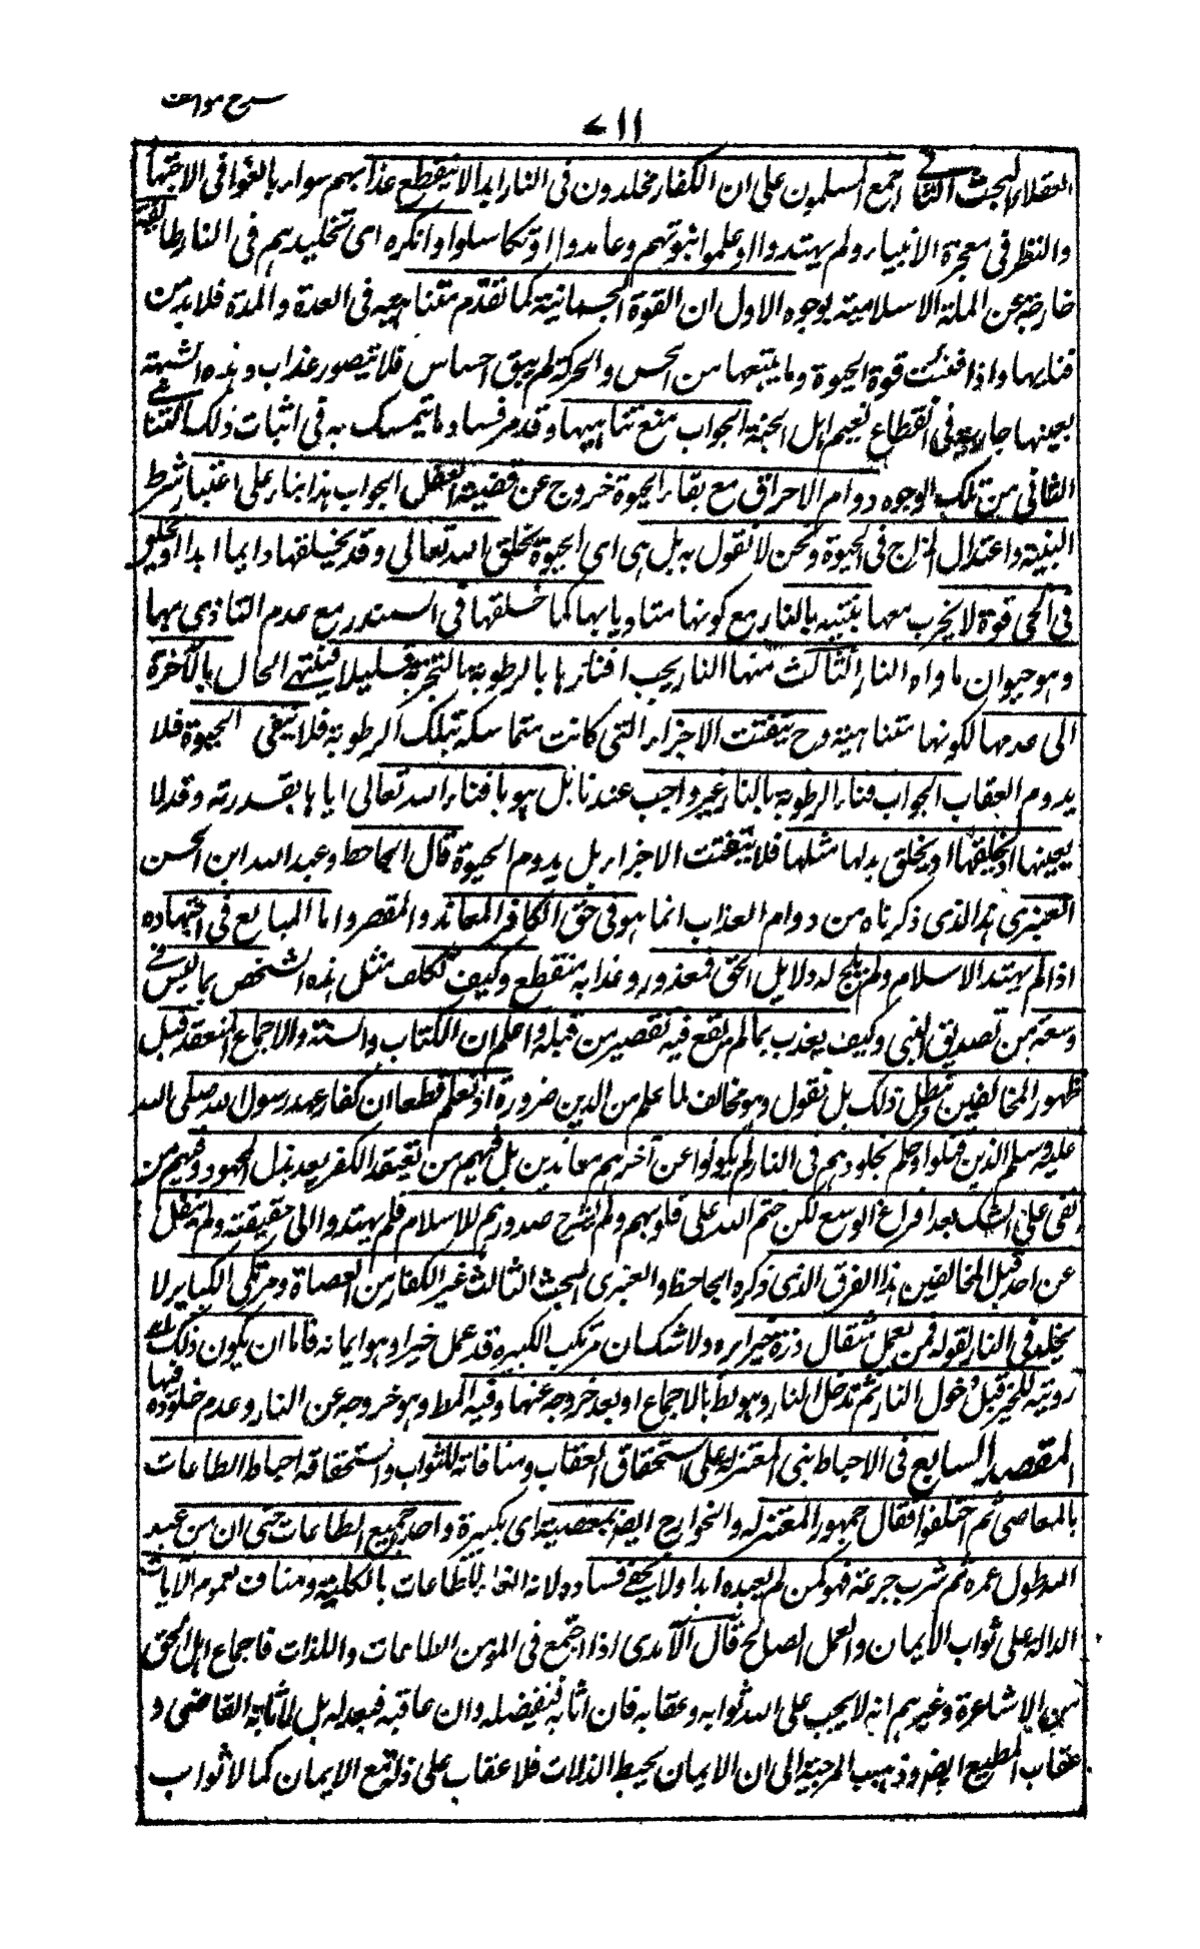 شرح مواقف
٧١١
العقلاء البحث الثانی اجمع المسلمون علی ان الکفار مخلدون فی النار ابدا لا ینقطع عذابهم سواء بالغوا فی الاجتهاد
والنظر فی معجزة الانبیاء ولم یهتدوا او علموا نبوتهم وعاندوا او تکاسلوا وانکره ای تخلیدهم فی النار طائفة
خارجة عن الملة الاسلامیة بوجوه الاول ان القوة الجسمانیة کما تقدم متناهیه فی العدة والمدة فلا بد من
فنایها واذا فنیت قوة الحیوة وما یتبعها من الحس والحرکة لم یبق احساس فلا یتصور عذاب وهذه الشبهة
بعینها جاریة فی انقطاع نعیم اهل الجنة الجواب منع تناهیها وقد مر فساد ما یتمسک به فی اثبات ذلک التناهی
الثانی من تلک الوجوه دوام الاحراق مع بقاء الحیوة خروج عن قضیة العقل الجواب هذا بناء علی اعتبار شرط
البنیة واعتدال المزاج فی الحیوة ونحن لا نقول به بل هی ای الحیوة بخلق الله تعالی وقد یخلقها دایما ابدا او یخلق
فی الحی قوة لا یخرب معها بنیته بالنار مع کونها متاذیا بها کما خلقها فی السمندر مع عدم التاذی بها
وهو حیوان ماواه النار الثالث منها النار یجب افناءها بالرطوبة بالتجربة قلیلا قلیلا فینتهی الحال بالآخرة
الی عدمها لکونها متناهیة وح یتفتت الاجزاء التی کانت متماسکة بتلک الرطوبة فلا یبقی الحیوة فلا
یدوم العقاب الجواب فناء الرطوبة بالنار غیر واجب عندنا بل هو بافناء الله تعالی ایاها بقدرته وقد لا
یفنیها او یخلقها او یخلق بدلها مثلها فلا یتفتت الاجزاء بل یدوم الحیوة قال الجاحظ وعبد الله ابن الحسن
العنبری هذا الذی ذکرناه من دوام العذاب انما هو فی حق الکافر المعاند والمقصر واما المبالغ فی اجتهاده
اذا لم یهتد الاسلام ولم یلح له دلایل الحق فمعذور وعذابه منقطع وکیف یکلف مثل هذه الشخص بما لیس فی
وسعه من تصدیق النبی وکیف یعذب بما لم یقع فیه تقصیر من قبله واعلم ان الکتاب والسنة والاجماع المنعقد قبل
ظهور المخالفین یبطل ذلک بل نقول وهو مخالف لما علم من الدین ضرورة اذ نعلم قطعا ان کفار عهد رسول الله صلی الله
علیه وسلم الذین قتلوا وحکم بخلودهم فی النار لم یکونوا عن آخرهم معاندین بل فیهم من یعتقد الکفر بعد بذل المجهود وفیهم من
بقی علی الشک بعد افراغ الوسع لکن ختم الله علی قلوبهم ولم یشرح صدورهم للاسلام فلم یهتدوا الی حقیقته ولم ینقل
عن احد قبل المخالفین هذا الفرق الذی ذکره الجاحظ والعنبری البحث الثالث غیر الکفار من العصاة ومرتکبی الکبایر لا
یخلد فی النار لقوله فمن یعمل مثقال ذرة خیرا یره ولا شک ان مرتکب الکبیرة قد عمل خیرا وهو ایمانه فاما ان یکون ذلک
رویته للخیر قبل دخول النار ثم تدخل النار وهو بط بالاجماع او بعد خروجه عنها وفیه المط وهو خروجه عن النار وعدم خلوده فیها
المقصد السابع فی الاحباط بنی المعتزلة علی استحقاق العقاب ومنافاته للثواب واستحقاقه احباط الطاعات
بالمعاصی ثم اختلفوا فقال جمهور المعتزله والخوارج ایض بمعصیة ای بکبیرة واحدة جمیع الطاعات حتی ان من عبد
الله طول عمره ثم شرب جرعة فهو کمن لم یعبده ابدا ولا یخفی فساده لانه الغاء للطاعات بالکلیة ومناف لعموم الآیات
الدالة علی ثواب الایمان والعمل الصالح قال الآمدی اذا اجتمع فی المؤمن الطاعات والذلات فاجماع اهل الحق
من الاشاعرة وغیرهم انه لا یجب علی الله ثوابه وعقابه فان اثابه فبفضله وان عاقبه فبعدله بل له اثابة العاصی و
عقاب المطیع ایض وذهب المرجیة الی ان الایمان یحبط الذلات فلا عقاب علی ذلة مع الایمان کما لا ثواب